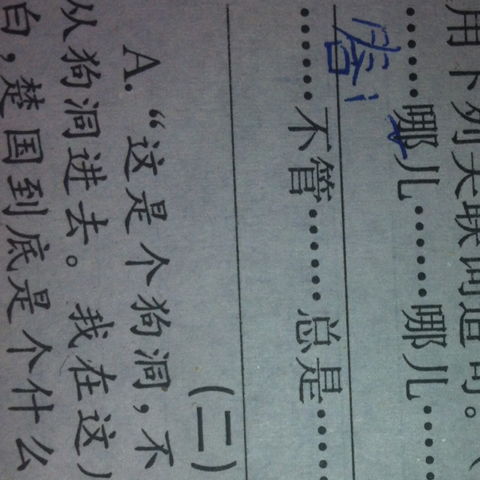 用下列关联词造句。(
……哪儿……哪儿……
……不管……总是……
(二)
A.“这是个狗洞,不
从狗洞进去。我在这
白,楚国到底是个什么